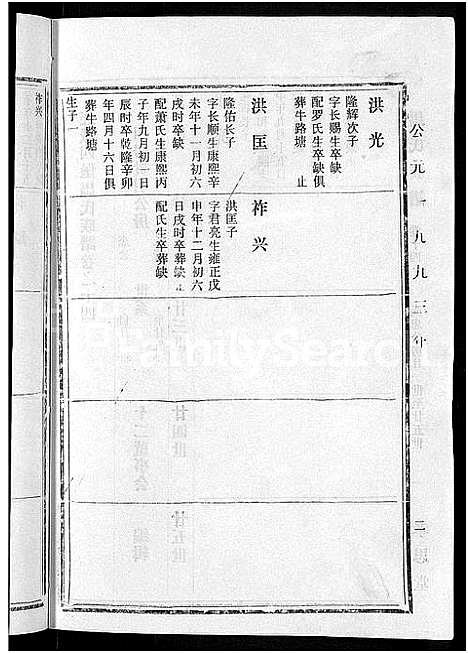 公元一九九三年
二
洪光
隆辉次子
字长赐生卒缺
配罗氏生卒缺俱
葬牛路塘 止
洪匡
隆佑长子
字长顺生康熙辛
未年十一月初六
戌时卒缺
配萧氏生康熙丙
子年九月初一日
辰时卒乾隆辛卯
年四月十六日俱
葬牛路塘
生子一
祚兴
洪匡子
字君亮生雍正戊
申年十二月初六
日戌时卒葬缺
配氏生卒葬缺 止
祚兴
FamilySearch